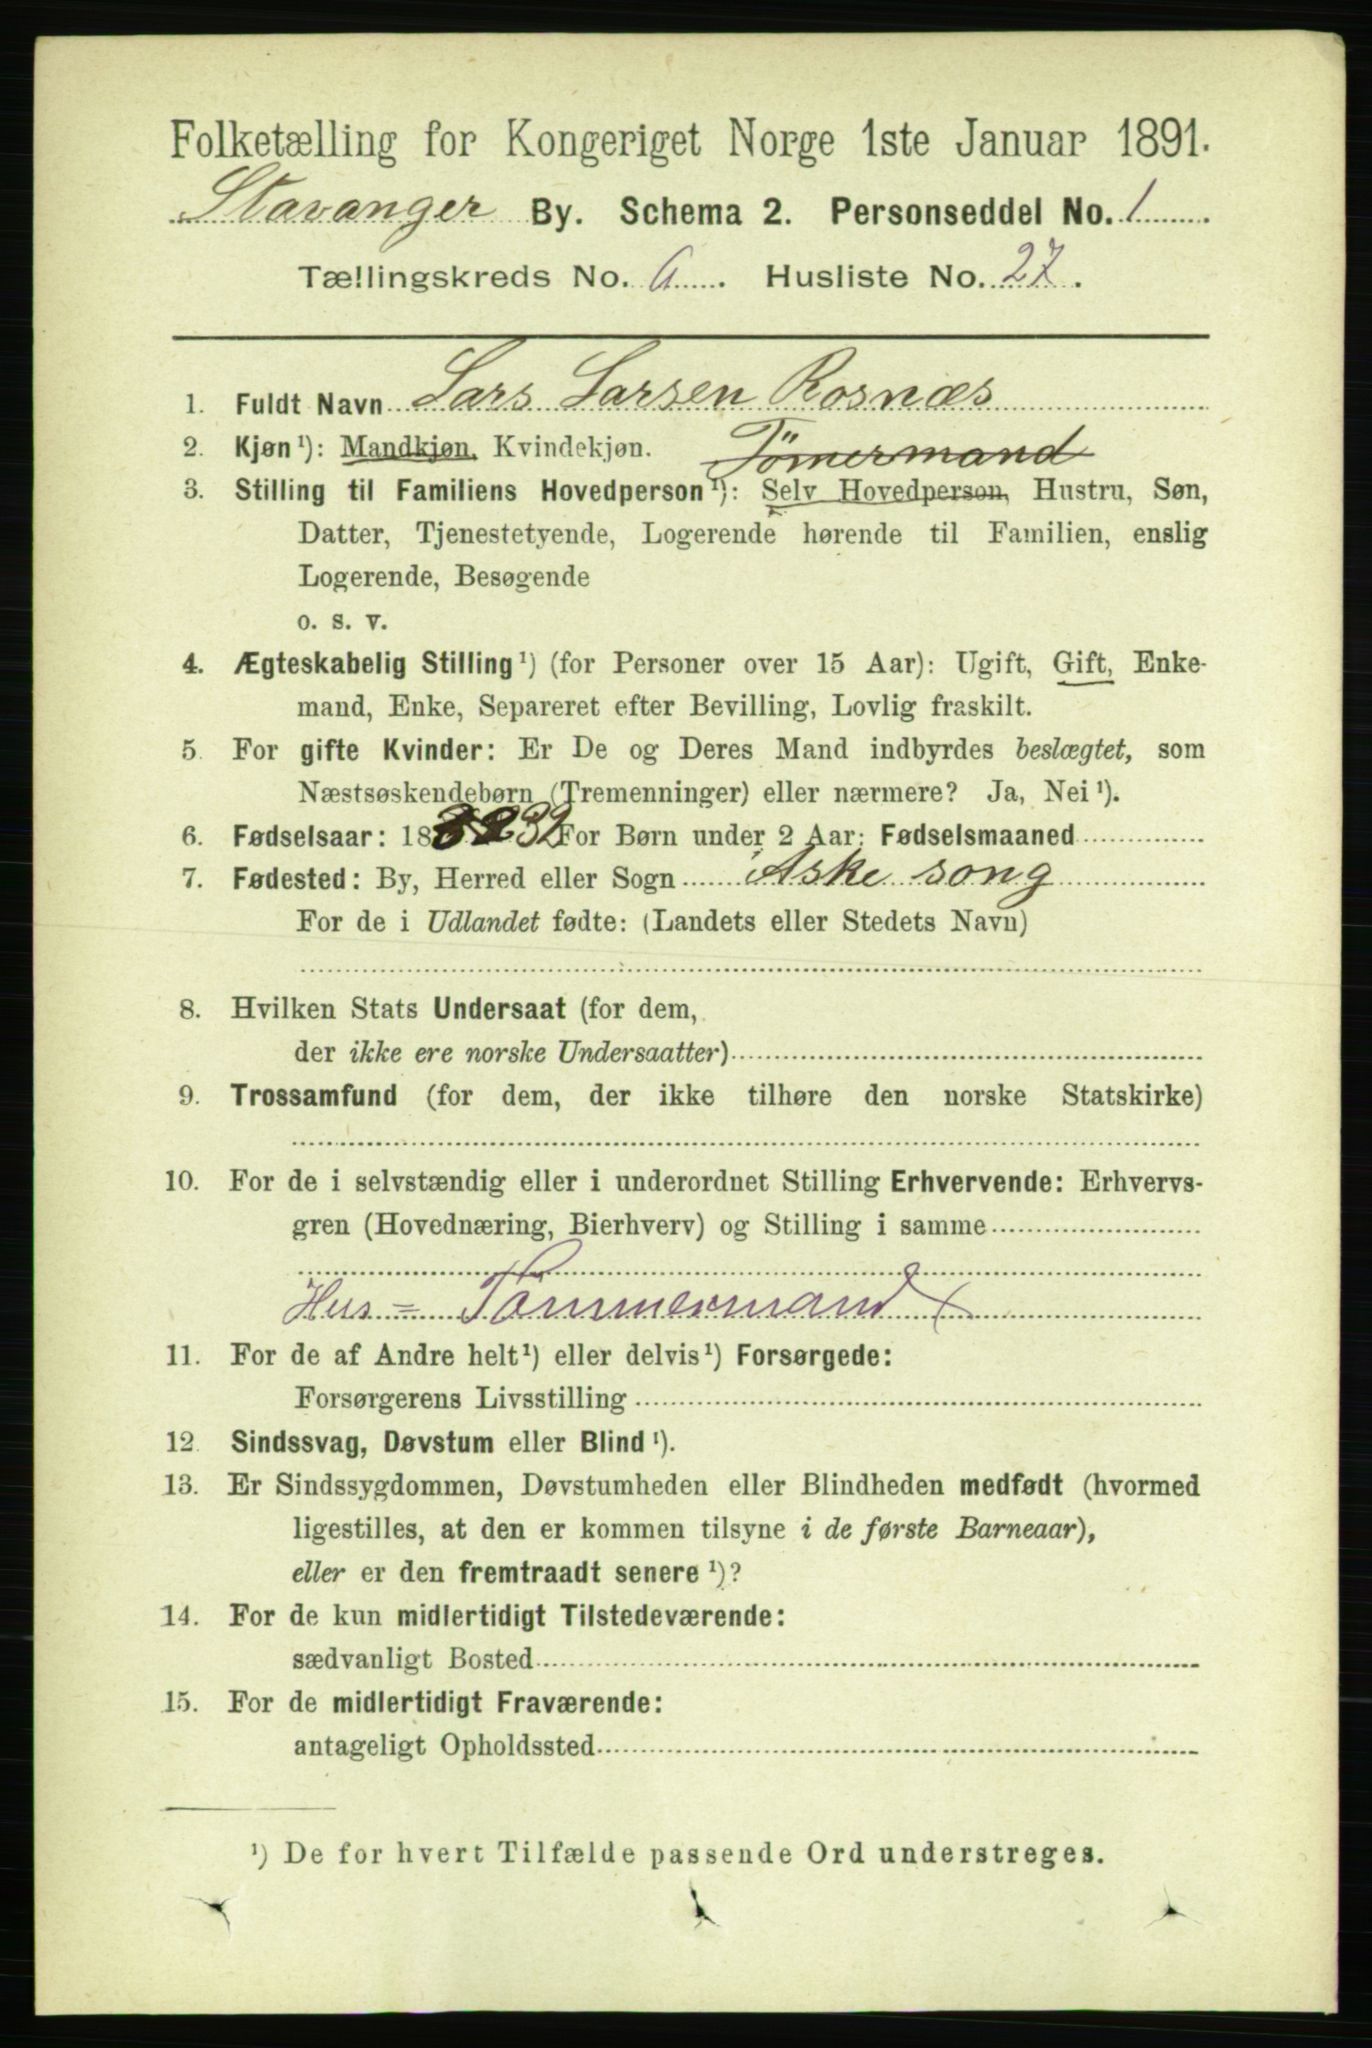 Folketælling for Kongeriget Norge 1ste Januar 1891.
Stavanger By. Schema 2. Personseddel No. 1
Tællingskreds No. 6. Husliste No. 27.
1. Fuldt Navn Lars Larsen Rosnæs
2. Kjøn¹): Mandkjøn, Kvindekjøn. Tömermand
3. Stilling til Familiens Hovedperson¹): Selv Hovedperson, Hustru, Søn,
Datter, Tjenestetyende, Logerende hørende til Familien, enslig
Logerende, Besøgende
o. s. v.
4. Ægteskabelig Stilling¹) (for Personer over 15 Aar): Ugift, Gift, Enke-
mand, Enke, Separeret efter Bevilling, Lovlig fraskilt.
5. For gifte Kvinder: Er De og Deres Mand indbyrdes beslægtet, som
Næstsøskendebørn (Tremenninger) eller nærmere? Ja, Nei¹).
6. Fødselsaar: 18 32 For Børn under 2 Aar: Fødselsmaaned
7. Fødested: By, Herred eller Sogn Aske song
For de i Udlandet fødte: (Landets eller Stedets Navn)
8. Hvilken Stats Undersaat (for dem,
der ikke ere norske Undersaatter)
9. Trossamfund (for dem, der ikke tilhøre den norske Statskirke)
10. For de i selvstændig eller i underordnet Stilling Erhvervende: Erhvervs-
gren (Hovednæring, Bierhverv) og Stilling i samme
Hus = Tömmermand x
11. For de af Andre helt¹) eller delvis¹) Forsørgede:
Forsørgerens Livsstilling
12. Sindssvag, Døvstum eller Blind¹).
13. Er Sindssygdommen, Døvstumheden eller Blindheden medfødt (hvormed
ligestilles, at den er kommen tilsyne i de første Barneaar),
eller er den fremtraadt senere¹)?
14. For de kun midlertidigt Tilstedeværende:
sædvanligt Bosted
15. For de midlertidigt Fraværende:
antageligt Opholdssted
¹) De for hvert Tilfælde passende Ord understreges.